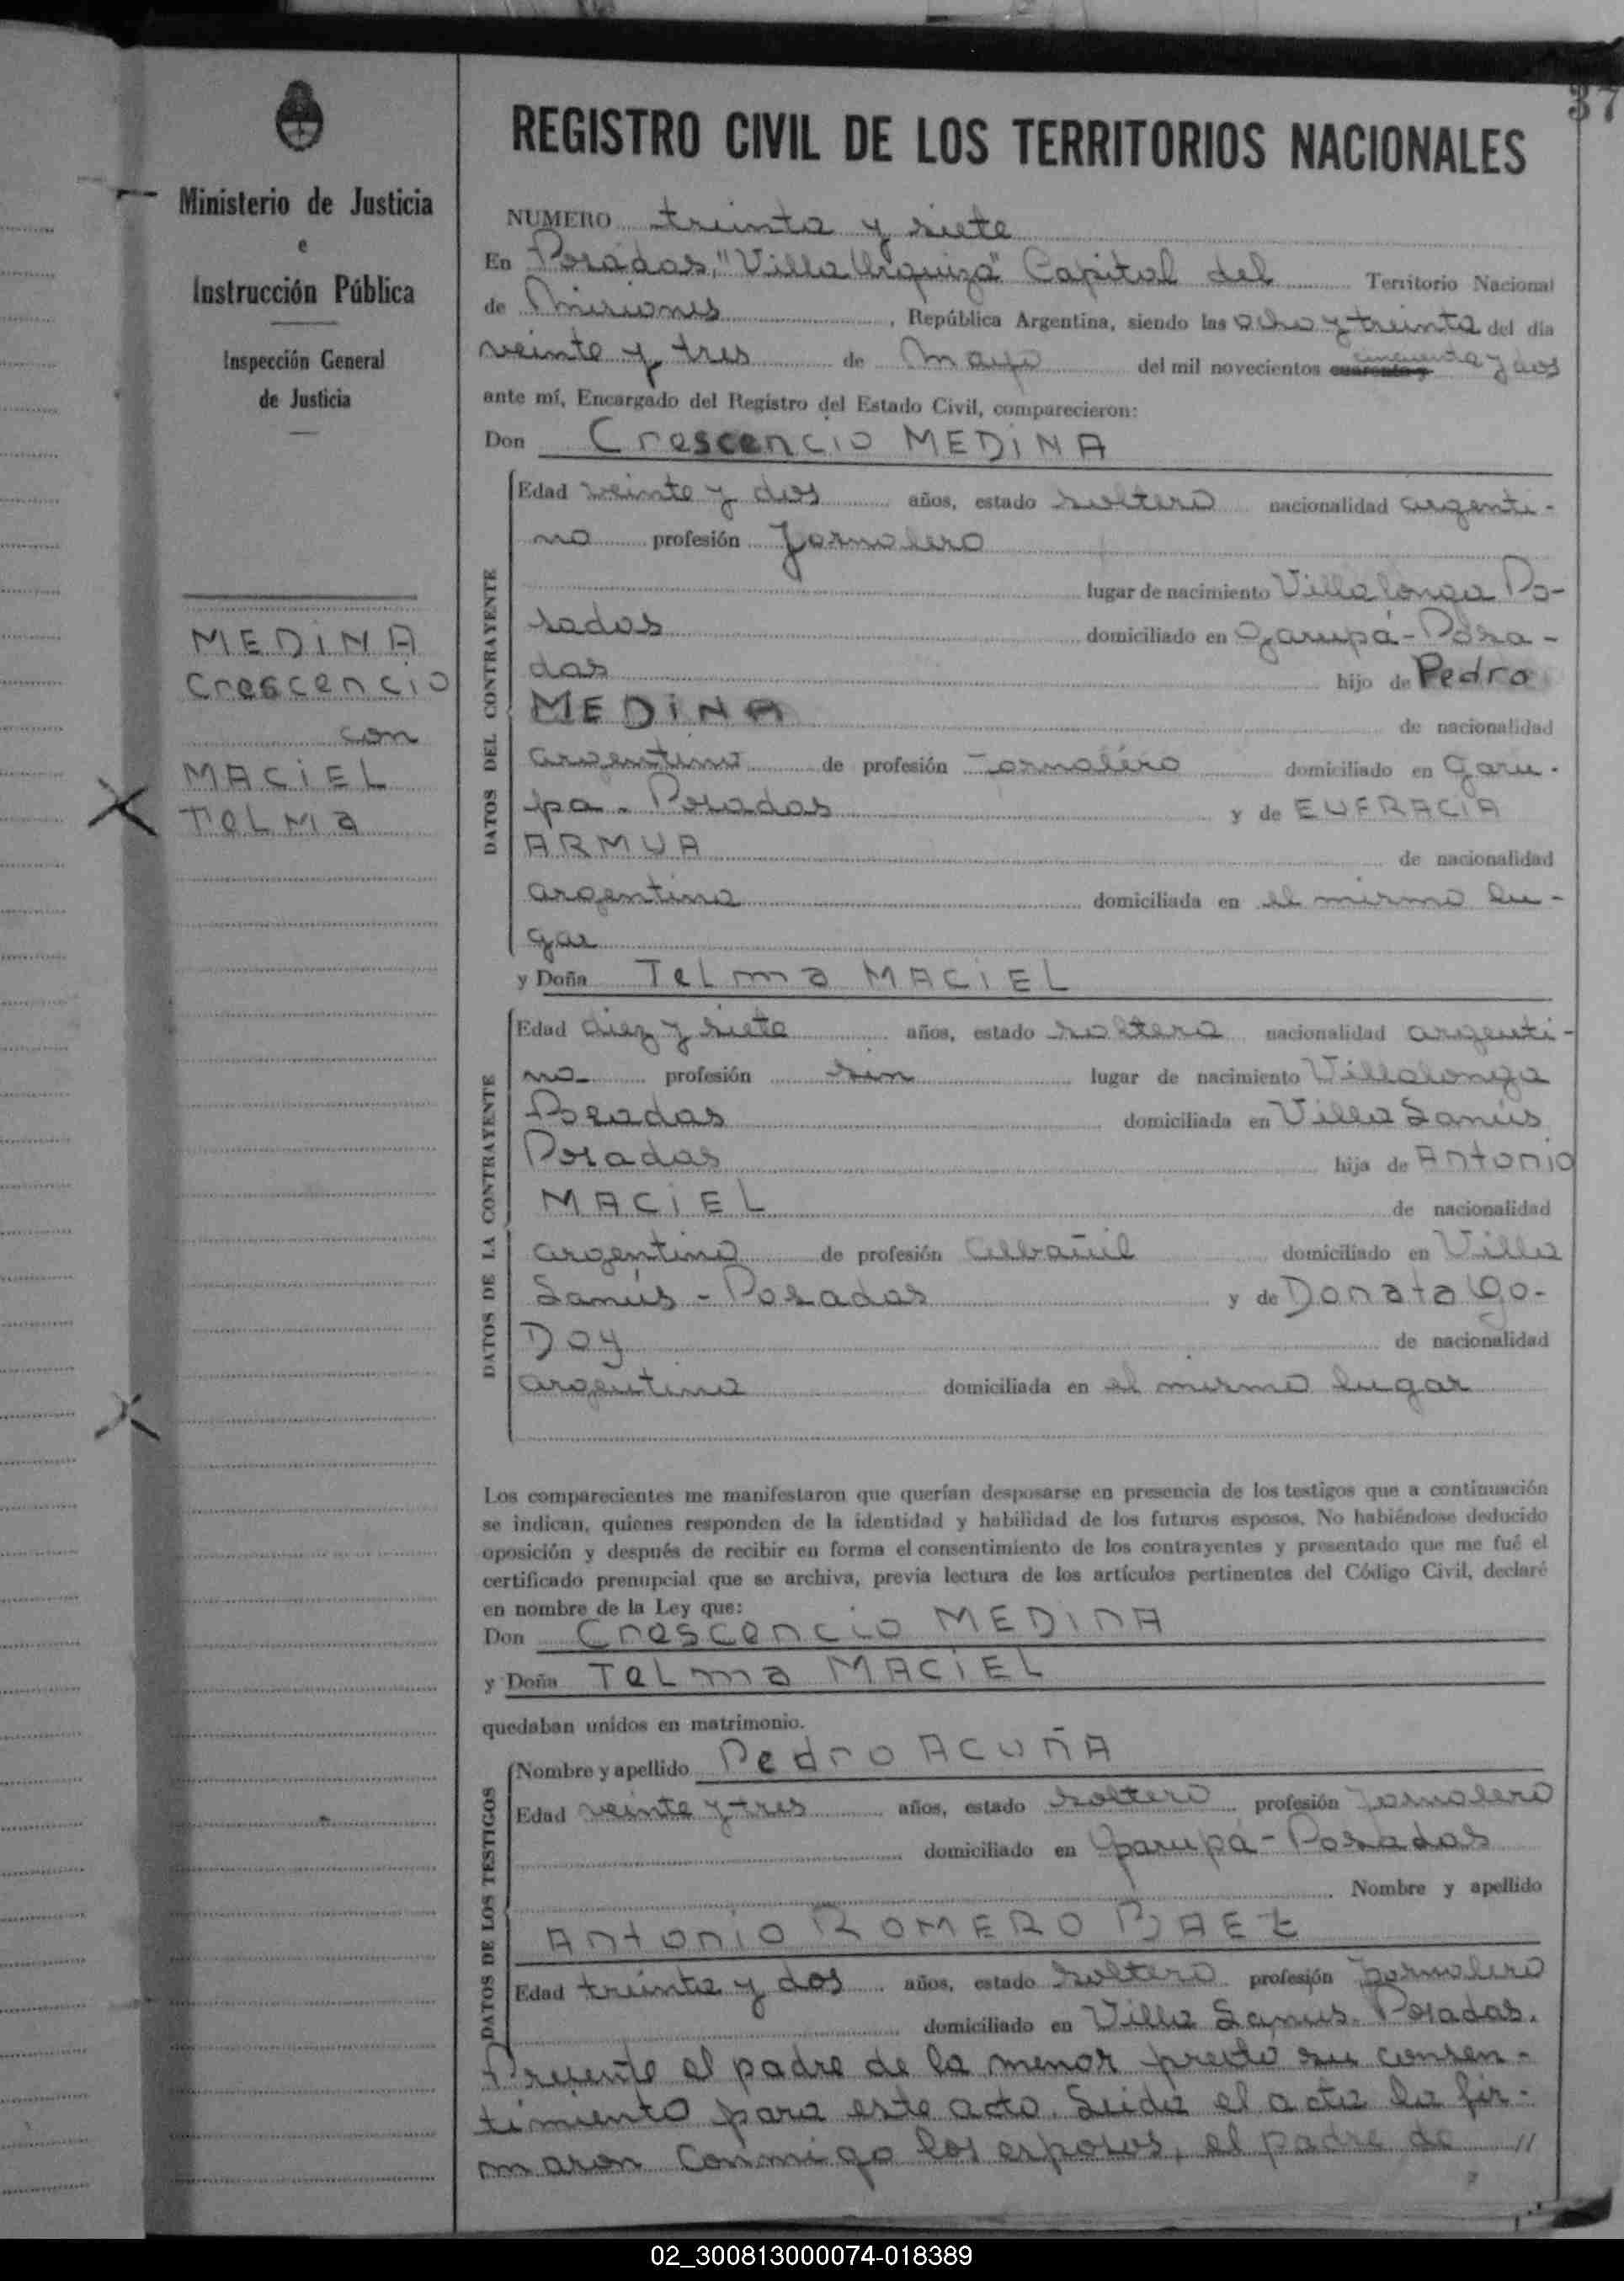 37
REGISTRO CIVIL DE LOS TERRITORIOS NACIONALES
Ministerio de Justicia
e
Instrucción Pública
Inspección General
de Justicia
MEDINA
Crescencio
con
MACIEL
TELMA
NUMERO treinta y siete
En Posadas, "Villa Urquiza" Capital del Territorio Nacional
de Misiones, República Argentina, siendo las ocho y treinta del día
veinte y tres de Mayo del mil novecientos cuarenta y cincuenta y dos
ante mí, Encargado del Registro del Estado Civil, comparecieron:
Don Crescencio MEDINA
DATOS DEL CONTRAYENTE
Edad veinte y dos años, estado soltero nacionalidad argenti-
no profesión Jornalero
lugar de nacimiento Villalonga Po-
sadas domiciliado en Garupá - Posa-
das hijo de Pedro
MEDINA de nacionalidad
argentino de profesión Jornalero domiciliado en Garu-
pa - Posadas y de EUFRACIA
ARMUA de nacionalidad
argentina domiciliada en el mismo lu-
gar
y Doña Telma MACIEL
DATOS DE LA CONTRAYENTE
Edad diez y siete años, estado soltera nacionalidad argenti-
na profesión sin lugar de nacimiento Villalonga
Posadas domiciliada en Villa Lanús
Posadas hija de Antonio
MACIEL de nacionalidad
argentino de profesión albañil domiciliado en Villa
Lanús - Posadas y de Donata Go-
Doy de nacionalidad
argentina domiciliada en el mismo lugar
Los comparecientes me manifestaron que querían desposarse en presencia de los testigos que a continuación
se indican, quienes responden de la identidad y habilidad de los futuros esposos. No habiéndose deducido
oposición y después de recibir en forma el consentimiento de los contrayentes y presentado que me fué el
certificado prenupcial que se archiva, previa lectura de los artículos pertinentes del Código Civil, declaré
en nombre de la Ley que:
Don Crescencio MEDINA
y Doña Telma MACIEL
quedaban unidos en matrimonio.
DATOS DE LOS TESTIGOS
Nombre y apellido Pedro ACUÑA
Edad veinte y tres años, estado soltero profesión Jornalero
domiciliado en Garupá - Posadas
Nombre y apellido
Antonio ROMERO BAEZ
Edad treinta y dos años, estado soltero profesión Jornalero
domiciliado en Villa Lanus. Posadas.
Presente el padre de la menor presto su consen-
timiento para este acto. Leida el acta la fir-
maron conmigo los esposos, el padre de //
02_300813000074-018389